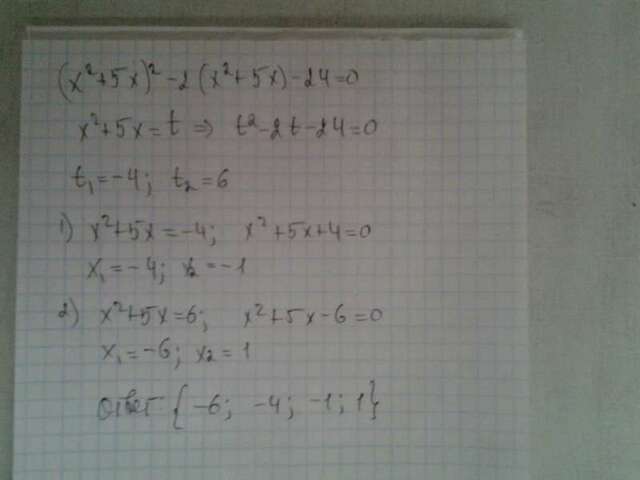 (x²+5x)²-2(x²+5x)-24=0
x²+5x=t ⇒ t²-2t-24=0
t₁=-4; t₂=6
1) x²+5x=-4; x²+5x+4=0
x₁=-4; x₂=-1
2) x²+5x=6; x²+5x-6=0
x₁=-6; x₂=1
Ответ {-6; -4; -1; 1}